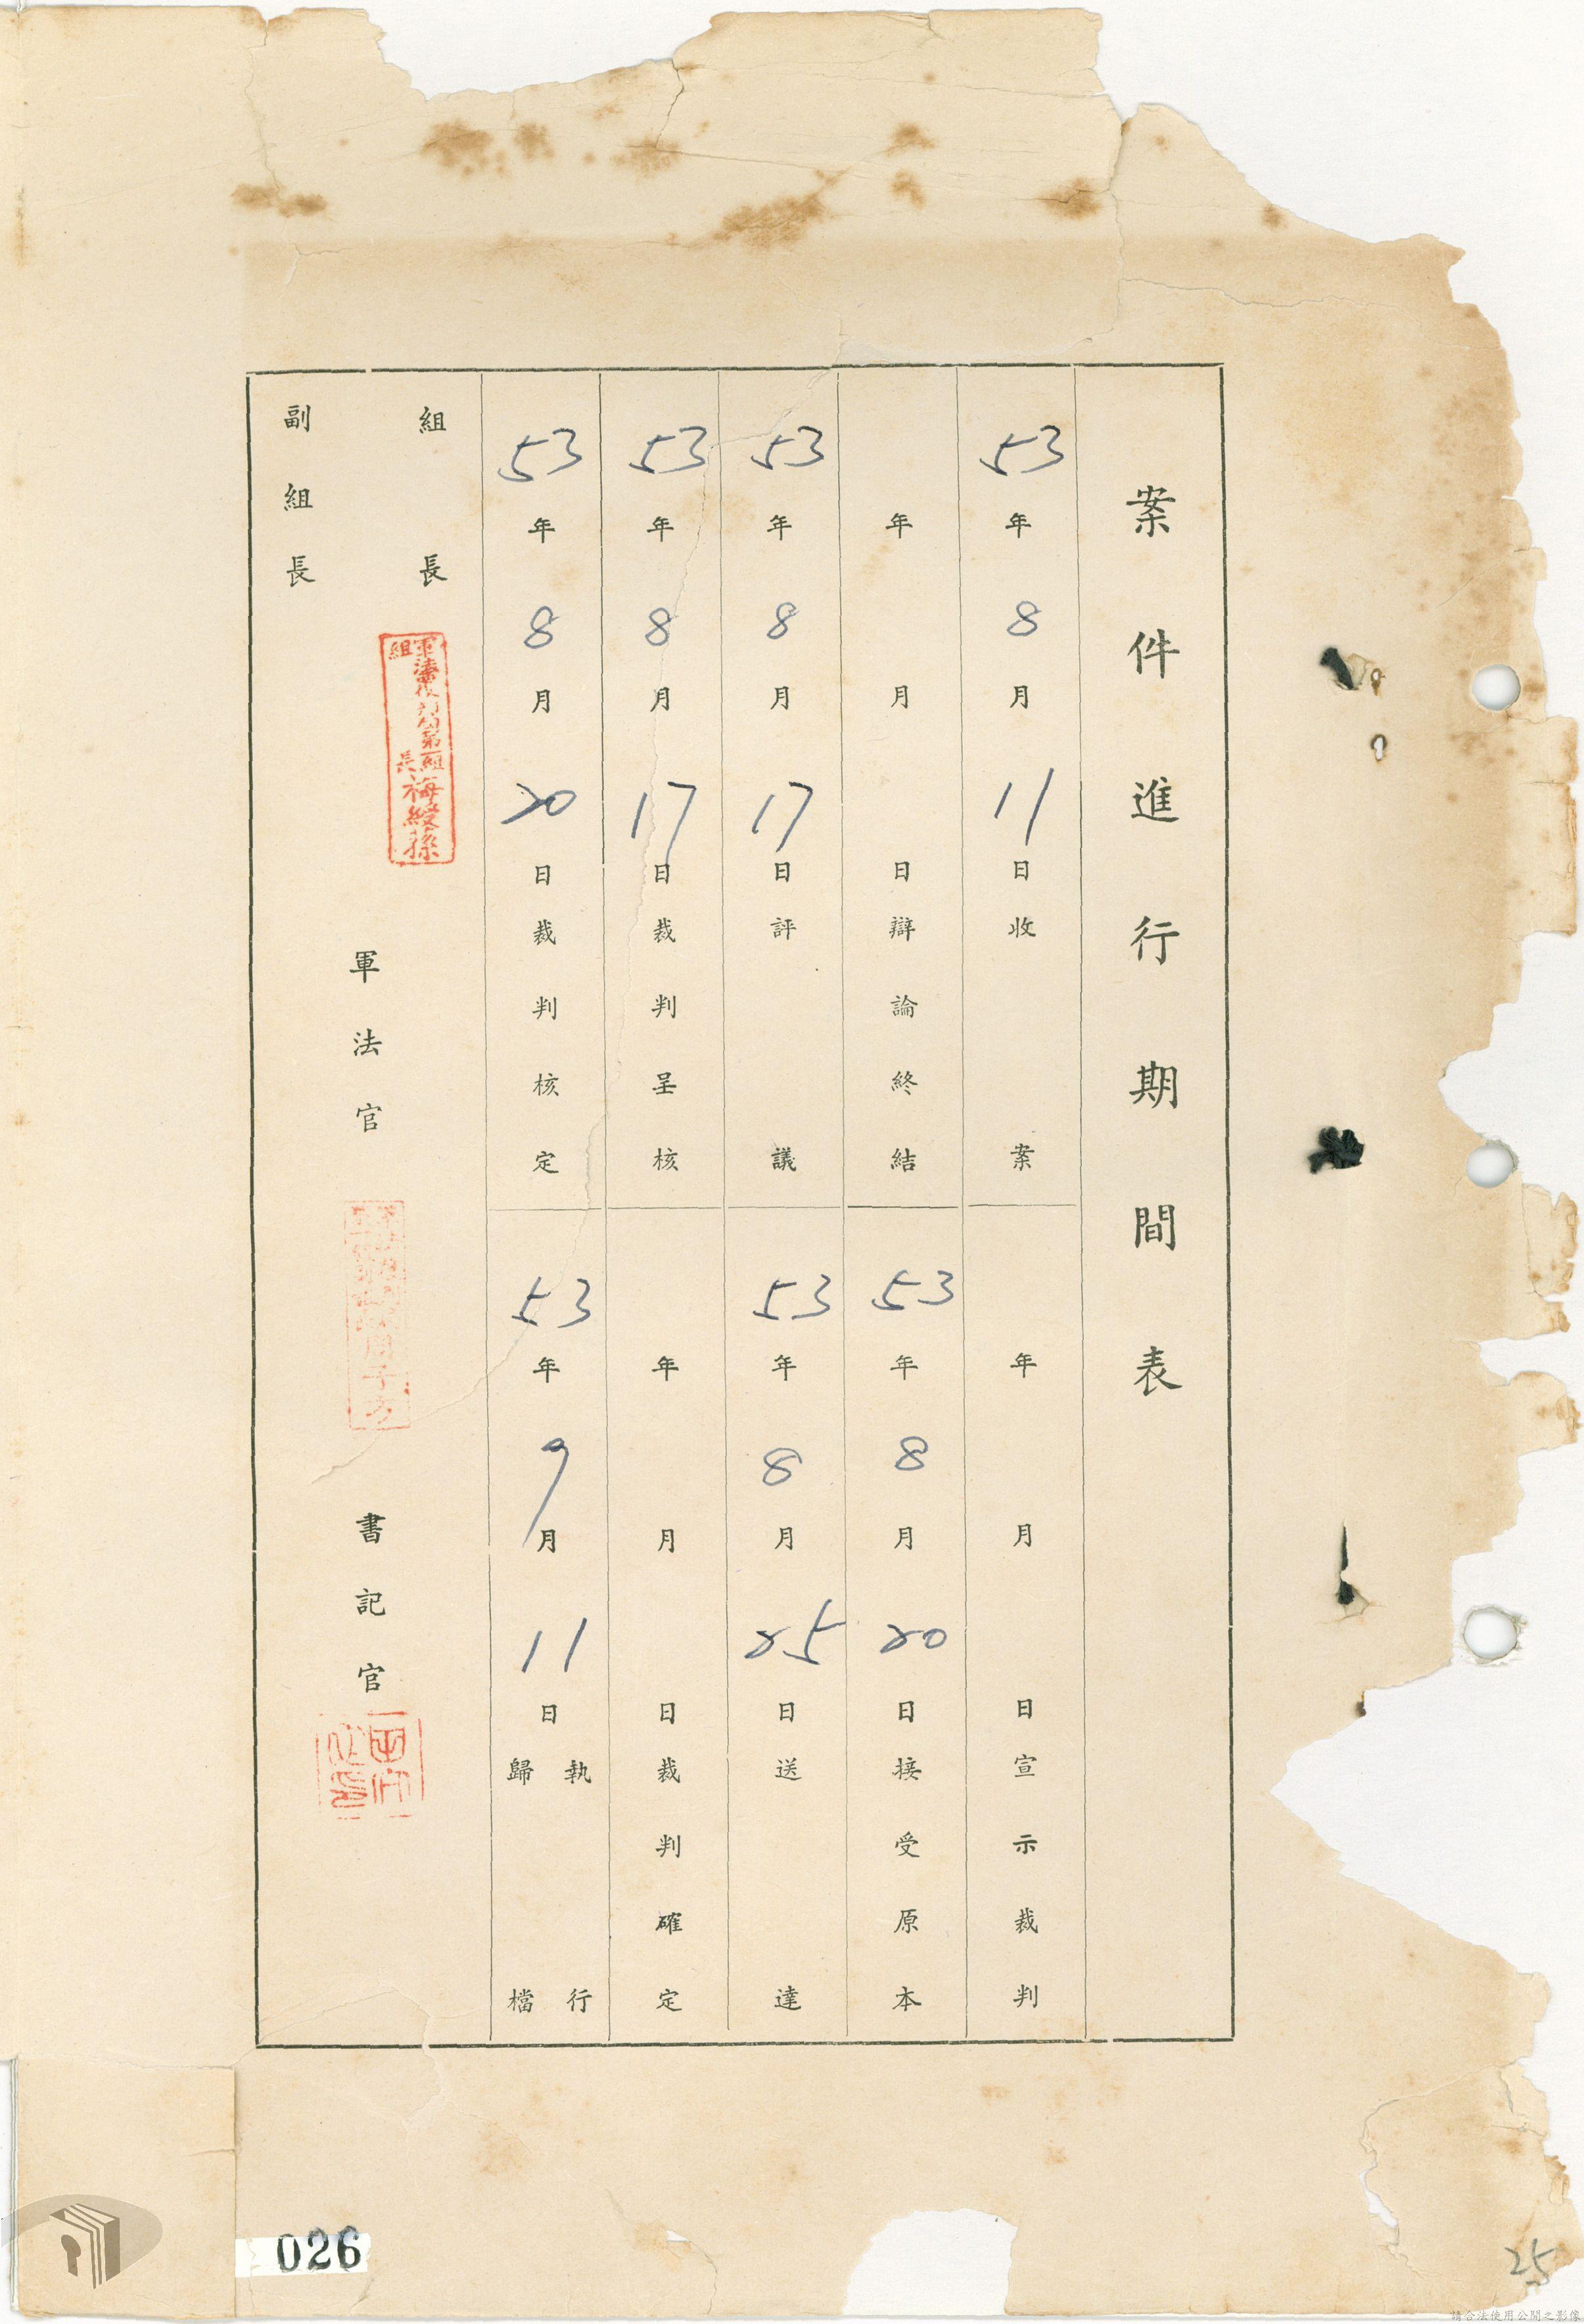 案件進行期間表
53年8月11日收案
年月日宣示裁判
年月日辯論終結
53年8月20日接受原本
53年8月17日評議
53年8月25日送達
53年8月17日裁判呈核
年月日裁判確定
53年8月20日裁判核定
53年9月11日執行歸檔
組長
組長梅綬孫
副組長
軍法官
書記官
026
25
請合法使用公開之影像